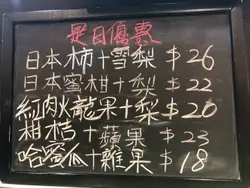 是日優惠
日本柿+雪梨 $26
日本蜜柑+梨 $22
紅肉火龍果+梨 $20
柑桔+蘋果 $23
哈蜜瓜+雜果 $18